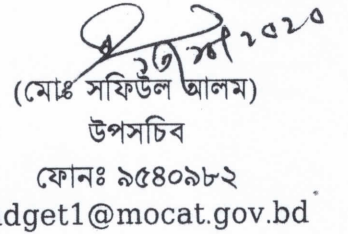 ২০২০
(মোঃ সফিউল আলম)
উপসচিব
ফোনঃ ৯৫৪০৯৮২
dget1@mocat.gov.bd